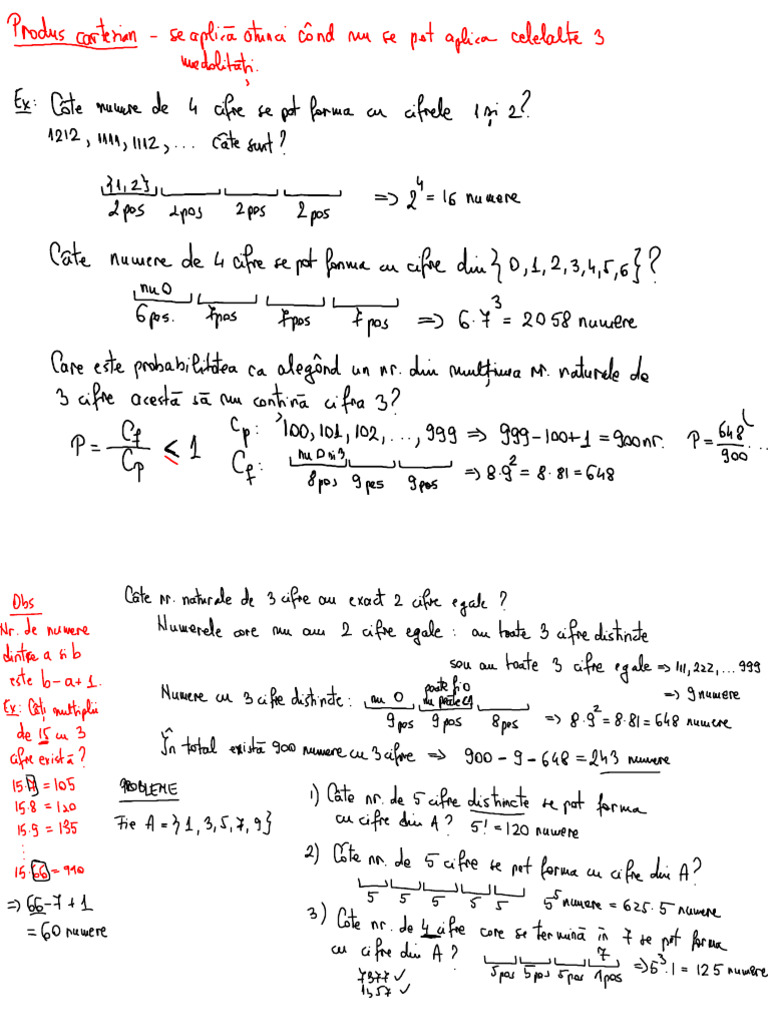 Produs cartezian - se aplică atunci când nu se pot aplica celelalte 3
modalități.
Ex: Câte numere de 4 cifre se pot forma cu cifrele 1 și 2?
1212, 1111, 1112, ... Câte sunt?
{1,2}
2pos 2pos 2pos 2pos => 2^4 = 16 numere
Câte numere de 4 cifre se pot forma cu cifre din {0,1,2,3,4,5,6}?
nu 0
6pos. 7pos 7pos 7pos => 6·7^3 = 2058 numere
Care este probabilitatea ca alegând un nr. din mulțimea nr. naturale de
3 cifre acesta să nu conțină cifra 3?
P = Cf/Cp ≤ 1
Cp: 100, 101, 102, ..., 999 => 999-100+1 = 900 nr.
P = 648/900 ...
Cf: nu 0 și 3
8pos 9pos 9pos => 8·9^2 = 8·81 = 648
Obs
Nr. de numere
dintre a și b
este b-a+1.
Ex: Câți multiplii
de 15 cu 3
cifre există?
15·7 = 105
15·8 = 120
15·9 = 135
⋮
15·66 = 990
=> 66-7+1
= 60 numere
Câte nr. naturale de 3 cifre au exact 2 cifre egale?
Numerele care nu au 2 cifre egale: au toate 3 cifre distincte
sau au toate 3 cifre egale => 111, 222, ... 999
=> 9 numere
Numere cu 3 cifre distincte: nu 0 poate fi 0
9pos 9pos 8pos => 8·9^2 = 8·81 = 648 numere
În total există 900 numere cu 3 cifre => 900 - 9 - 648 = 243 numere
PROBLEME
Fie A = {1, 3, 5, 7, 9}
1) Câte nr. de 5 cifre distincte se pot forma
cu cifre din A? 5! = 120 numere
2) Câte nr. de 5 cifre se pot forma cu cifre din A?
5 5 5 5 5 5^5 numere = 625·5 numere
3) Câte nr. de 4 cifre care se termină în 7 se pot forma
cu cifre din A?
7
5pos 5pos 5pos 1pos => 5^3·1 = 125 numere
7377 ✓
1357 ✓